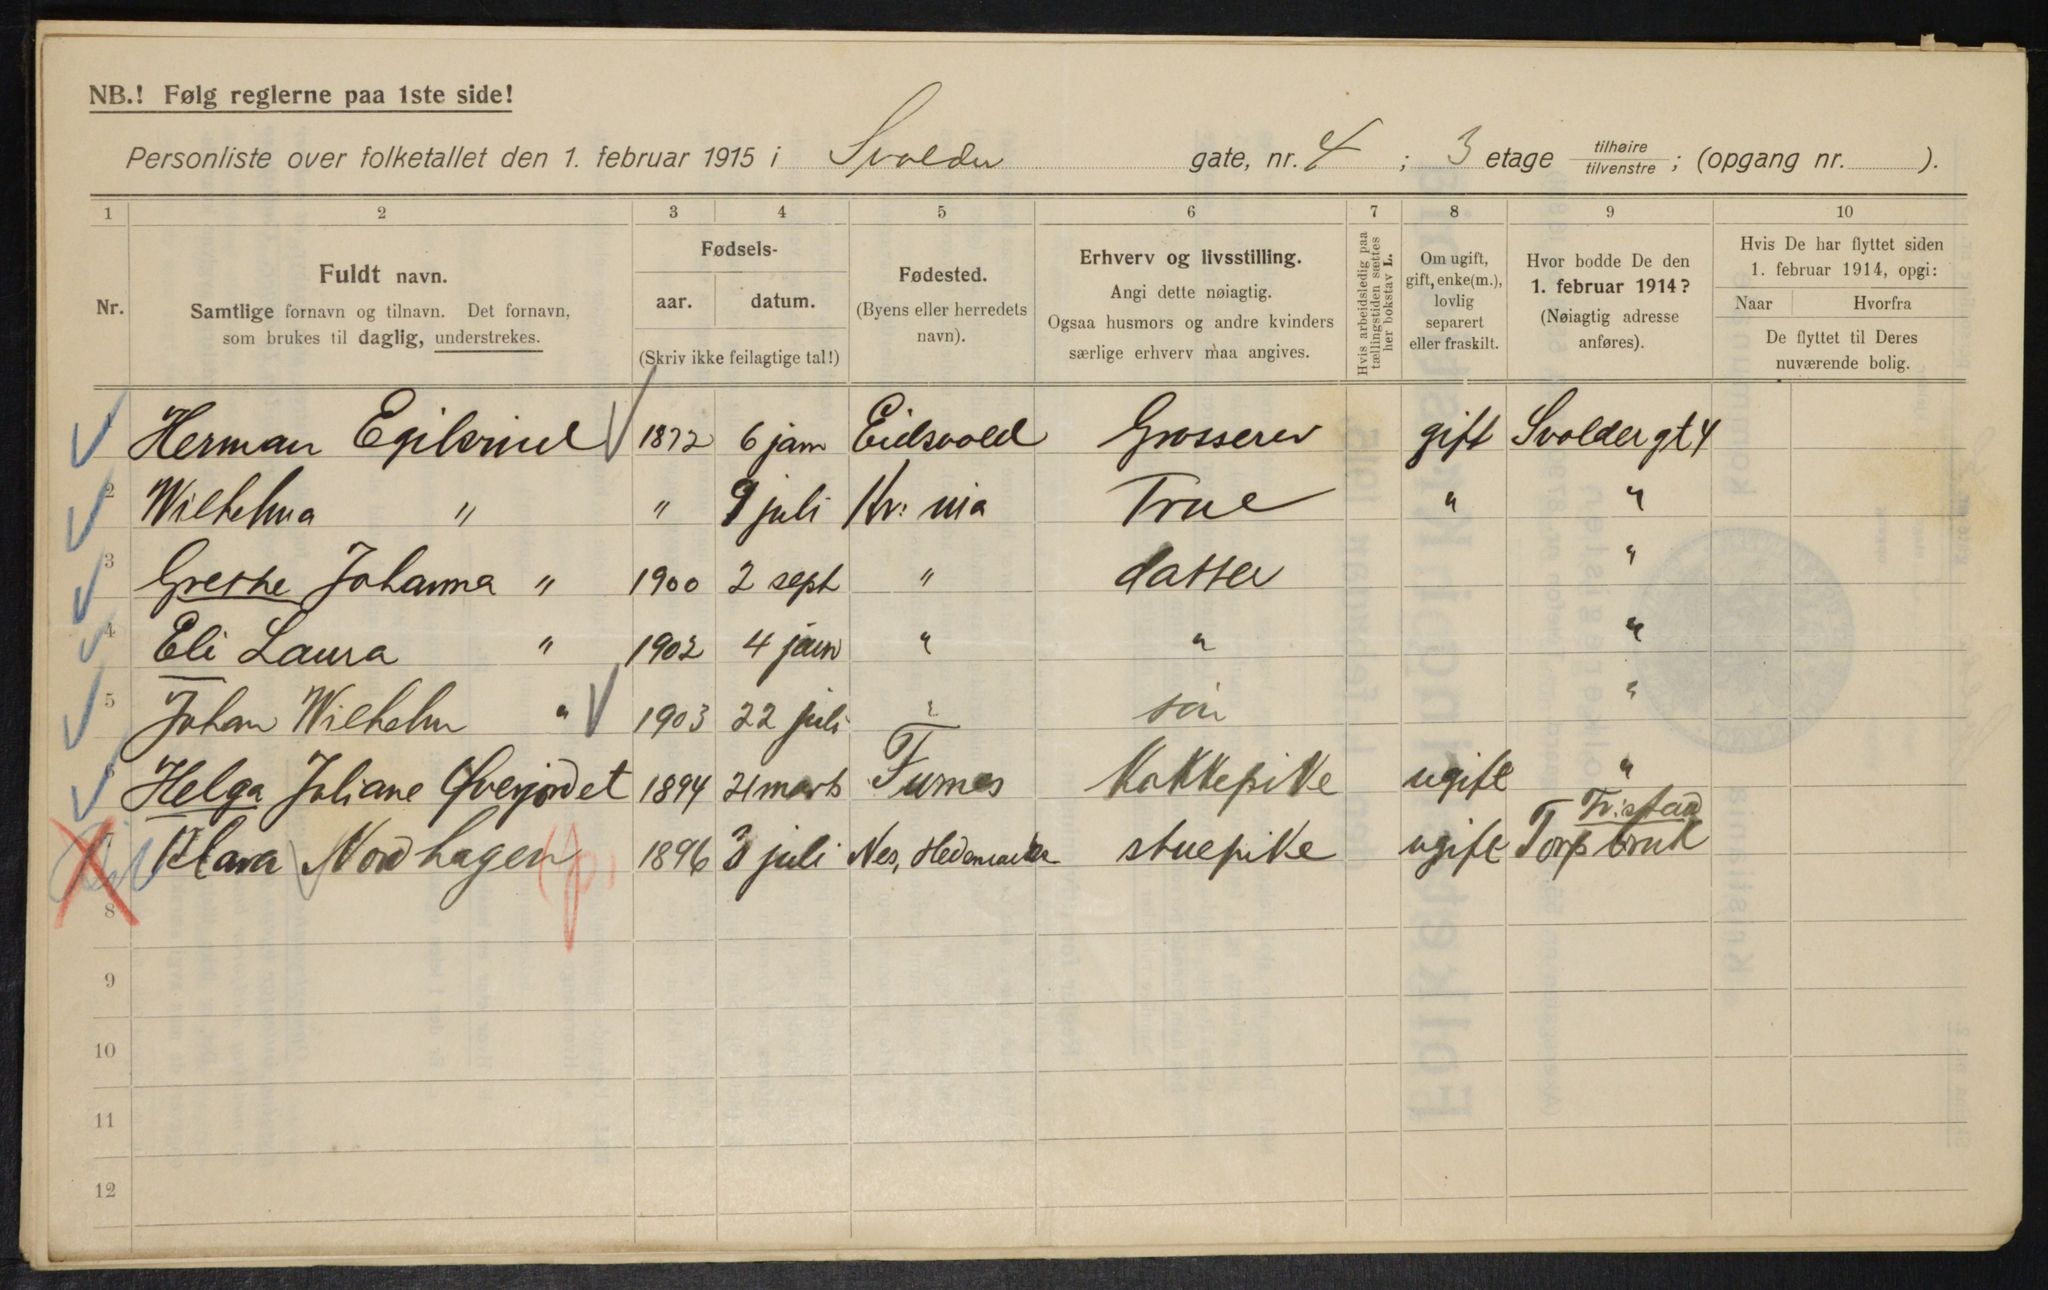 NB.! Følg reglerne paa 1ste side!
Personliste over folketallet den 1. februar 1915 i Svolder gate, nr. 4 ; 3 etage tilhøire tilvenstre ; (opgang nr. ).
1 2 3 4 5 6 7 8 9 10
Nr.
Fuldt navn.
Samtlige fornavn og tilnavn. Det fornavn,
som brukes til daglig, understrekes.
Fødsels-
aar. datum.
(Skriv ikke feilagtige tal!)
Fødested.
(Byens eller herredets
navn).
Erhverv og livsstilling.
Angi dette nøiagtig.
Ogsaa husmors og andre kvinders
særlige erhverv maa angives.
Hvis arbeidsledig paa
tællingstiden sættes
her bokstav L.
Om ugift,
gift, enke(m.),
lovlig
separert
eller fraskilt.
Hvor bodde De den
1. februar 1914?
(Nøiagtig adresse
anføres).
Hvis De har flyttet siden
1. februar 1914, opgi:
Naar Hvorfra
De flyttet til Deres
nuværende bolig.
Herman 1872 6 jan Eidsvold Grosserer gift Svolder gt 4
2 Wilhelma " " 9 juli Kr: nia Frue " "
3 Grethe Johanna " 1900 2 sept " datter "
4 Eli Laura " 1902 4 jan " " "
5 Johan Wilhelm " 1903 22 juli " søn "
6 Helga Juliane Øverjordet 1894 21 marts Furnes Kokkepike ugift "
7 Klara Nordhagen 1896 3 juli Nes, Hedemarken stuepike ugift Torp bruk
Fr:stad
8
9
10
11
12